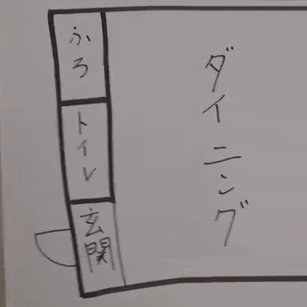 ふろ
トイレ
玄関
ダイニング